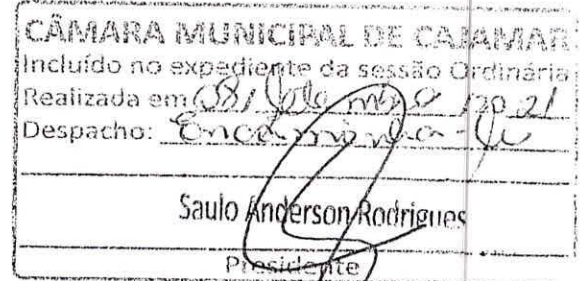 CÂMARA MUNICIPAL DE CAJAMAR
Incluído no expediente da sessão Ordinária
Realizada em 08/ fevereiro /2021
Despacho: Encaminha-se
Saulo Anderson Rodrigues
Presidente